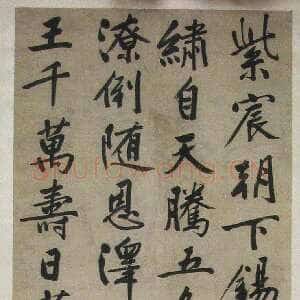 紫宸朝下錫
繡自天騰五
潦倒随恩澤
王千萬壽日